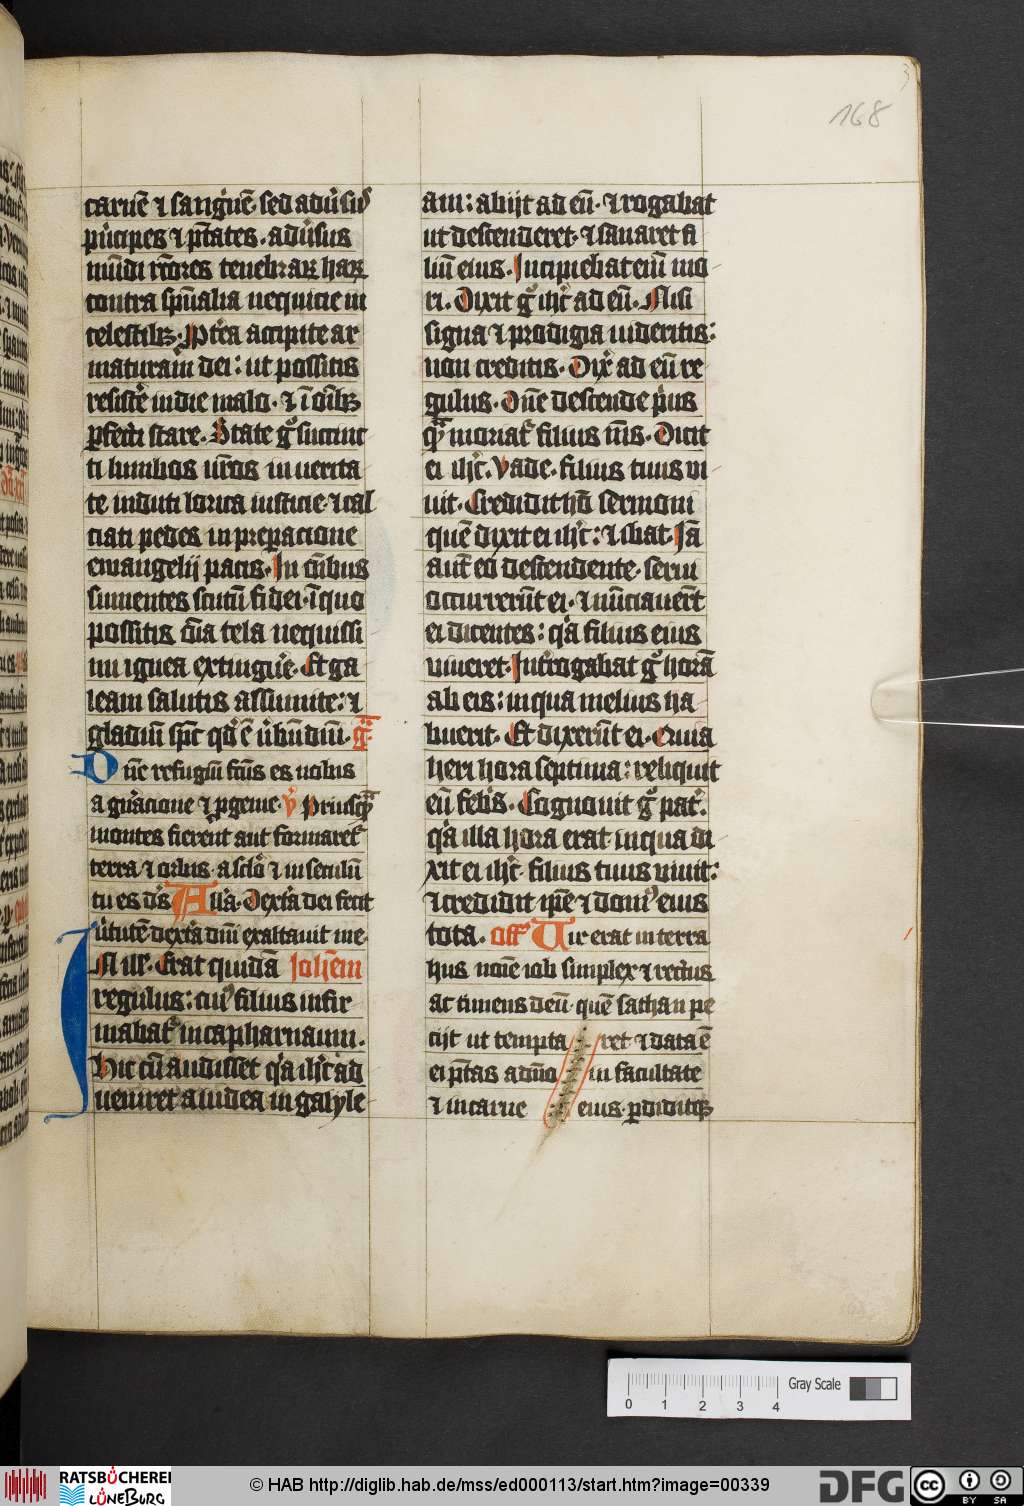 168
carnē ⁊ sangͥnē· sed adūsus
pͥncipes ⁊ ptātes· adūsus
mūdi rc̄ores tenebraꝝ haꝝ
contra spūalia nequicie in
celestibꝫ· Ptͣea accipite ar
maturam dei: ut possitis
resistē in die malo· ⁊ ī oībꝫ
ꝑfecti stare· State gͦ succinc
ti lumbos uros in uerita
te induti lorica iusticie· ⁊ cal
ciati pedes in preparacione
ewangelij pacis· In oībus
sumentes scutū fidei· ī quo
possitis oīa tela nequissi
mi ignea extingūe· Et ga
leam salutis assumite: ⁊
gladiū spc̄ qd̄ ē ūbū dīu· gͣ·
Dn̄e refugiū fcūs es nobis
a gn̄acione ⁊ pgenie· v̄ Priusqͣ
montes fierent aut formaret
terra ⁊ orbis· a sclō ⁊ in seculū
tu es ds̄ Allā· Dextͣa dei fecit
ūtutē dextͣa dnī exaltauit me·
In ill̄· Erat quidā Iohēm
regulus: cuiꝰ filius infir
mabatͬ in capharnaum·
Hic cū audisset qͥa ih̄c ad
ueniret a iudea in galyle
am: abijt ad eū· ⁊ rogabat
ut descenderet· ⁊ sanaret fi
liū eius· Incipiebat eīm mo
ri· Dixit gͦ ih̄c ad eū· Nisi
signa ⁊ prodigia uideritis:
non creditis· Dix̄ ad eū re
gulus· Dn̄e descende pͥus
qͣ moriatͬ filius ms̄· Dicit
ei ih̄c· Vade· filius tuus ui
uit· Credidit hō sermoni
quē dixit ei ih̄c: ⁊ ibat· Iā
aut̄ eo descendente· serui
occurrerūt ei· ⁊ nūciauert̄
ei dicentes: qͥa filius eius
uiueret· Intͬogabat gͦ horā
ab eis: in qua melius ha
buerit· Et dixerūt ei· Quia
heri hora septima: reliquit
eū febͥs· Cognouit gͦ patͬ·
qͥa illa hora erat· in qua di
xit ei ih̄c· filius tuus uiuit:
⁊ credidit ip̄e ⁊ domꝰ eius
tota· off̄ Uir erat in terra
hus noīe iob simplex ⁊ rectus
ac timens deū· quē sathan pe
cijt ut tempta ret ⁊ data ē
ei ptas̄ a dn̄o in facultate
⁊ in carne eius· ꝑdiditqꝫ
Gray Scale
0 1 2 3 4
RATSBÜCHEREI LÜNEBURG
© HAB http://diglib.hab.de/mss/ed000113/start.htm?image=00339
DFG
cc BY SA